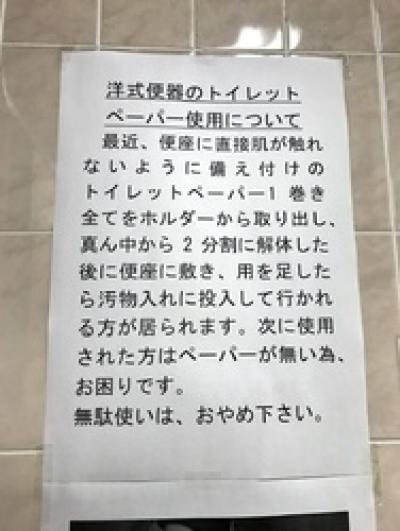 洋式便器のトイレット
ペーパー使用について
最近、便座に直接肌が触れ
ないように備え付けの
トイレットペーパー1 巻き
全てをホルダーから取り出し、
真ん中から 2 分割に解体した
後に便座に敷き、用を足した
ら汚物入れに投入して行かれ
る方が居られます。次に使用
された方はペーパーが無い為、
お困りです。
無駄使いは、おやめ下さい。